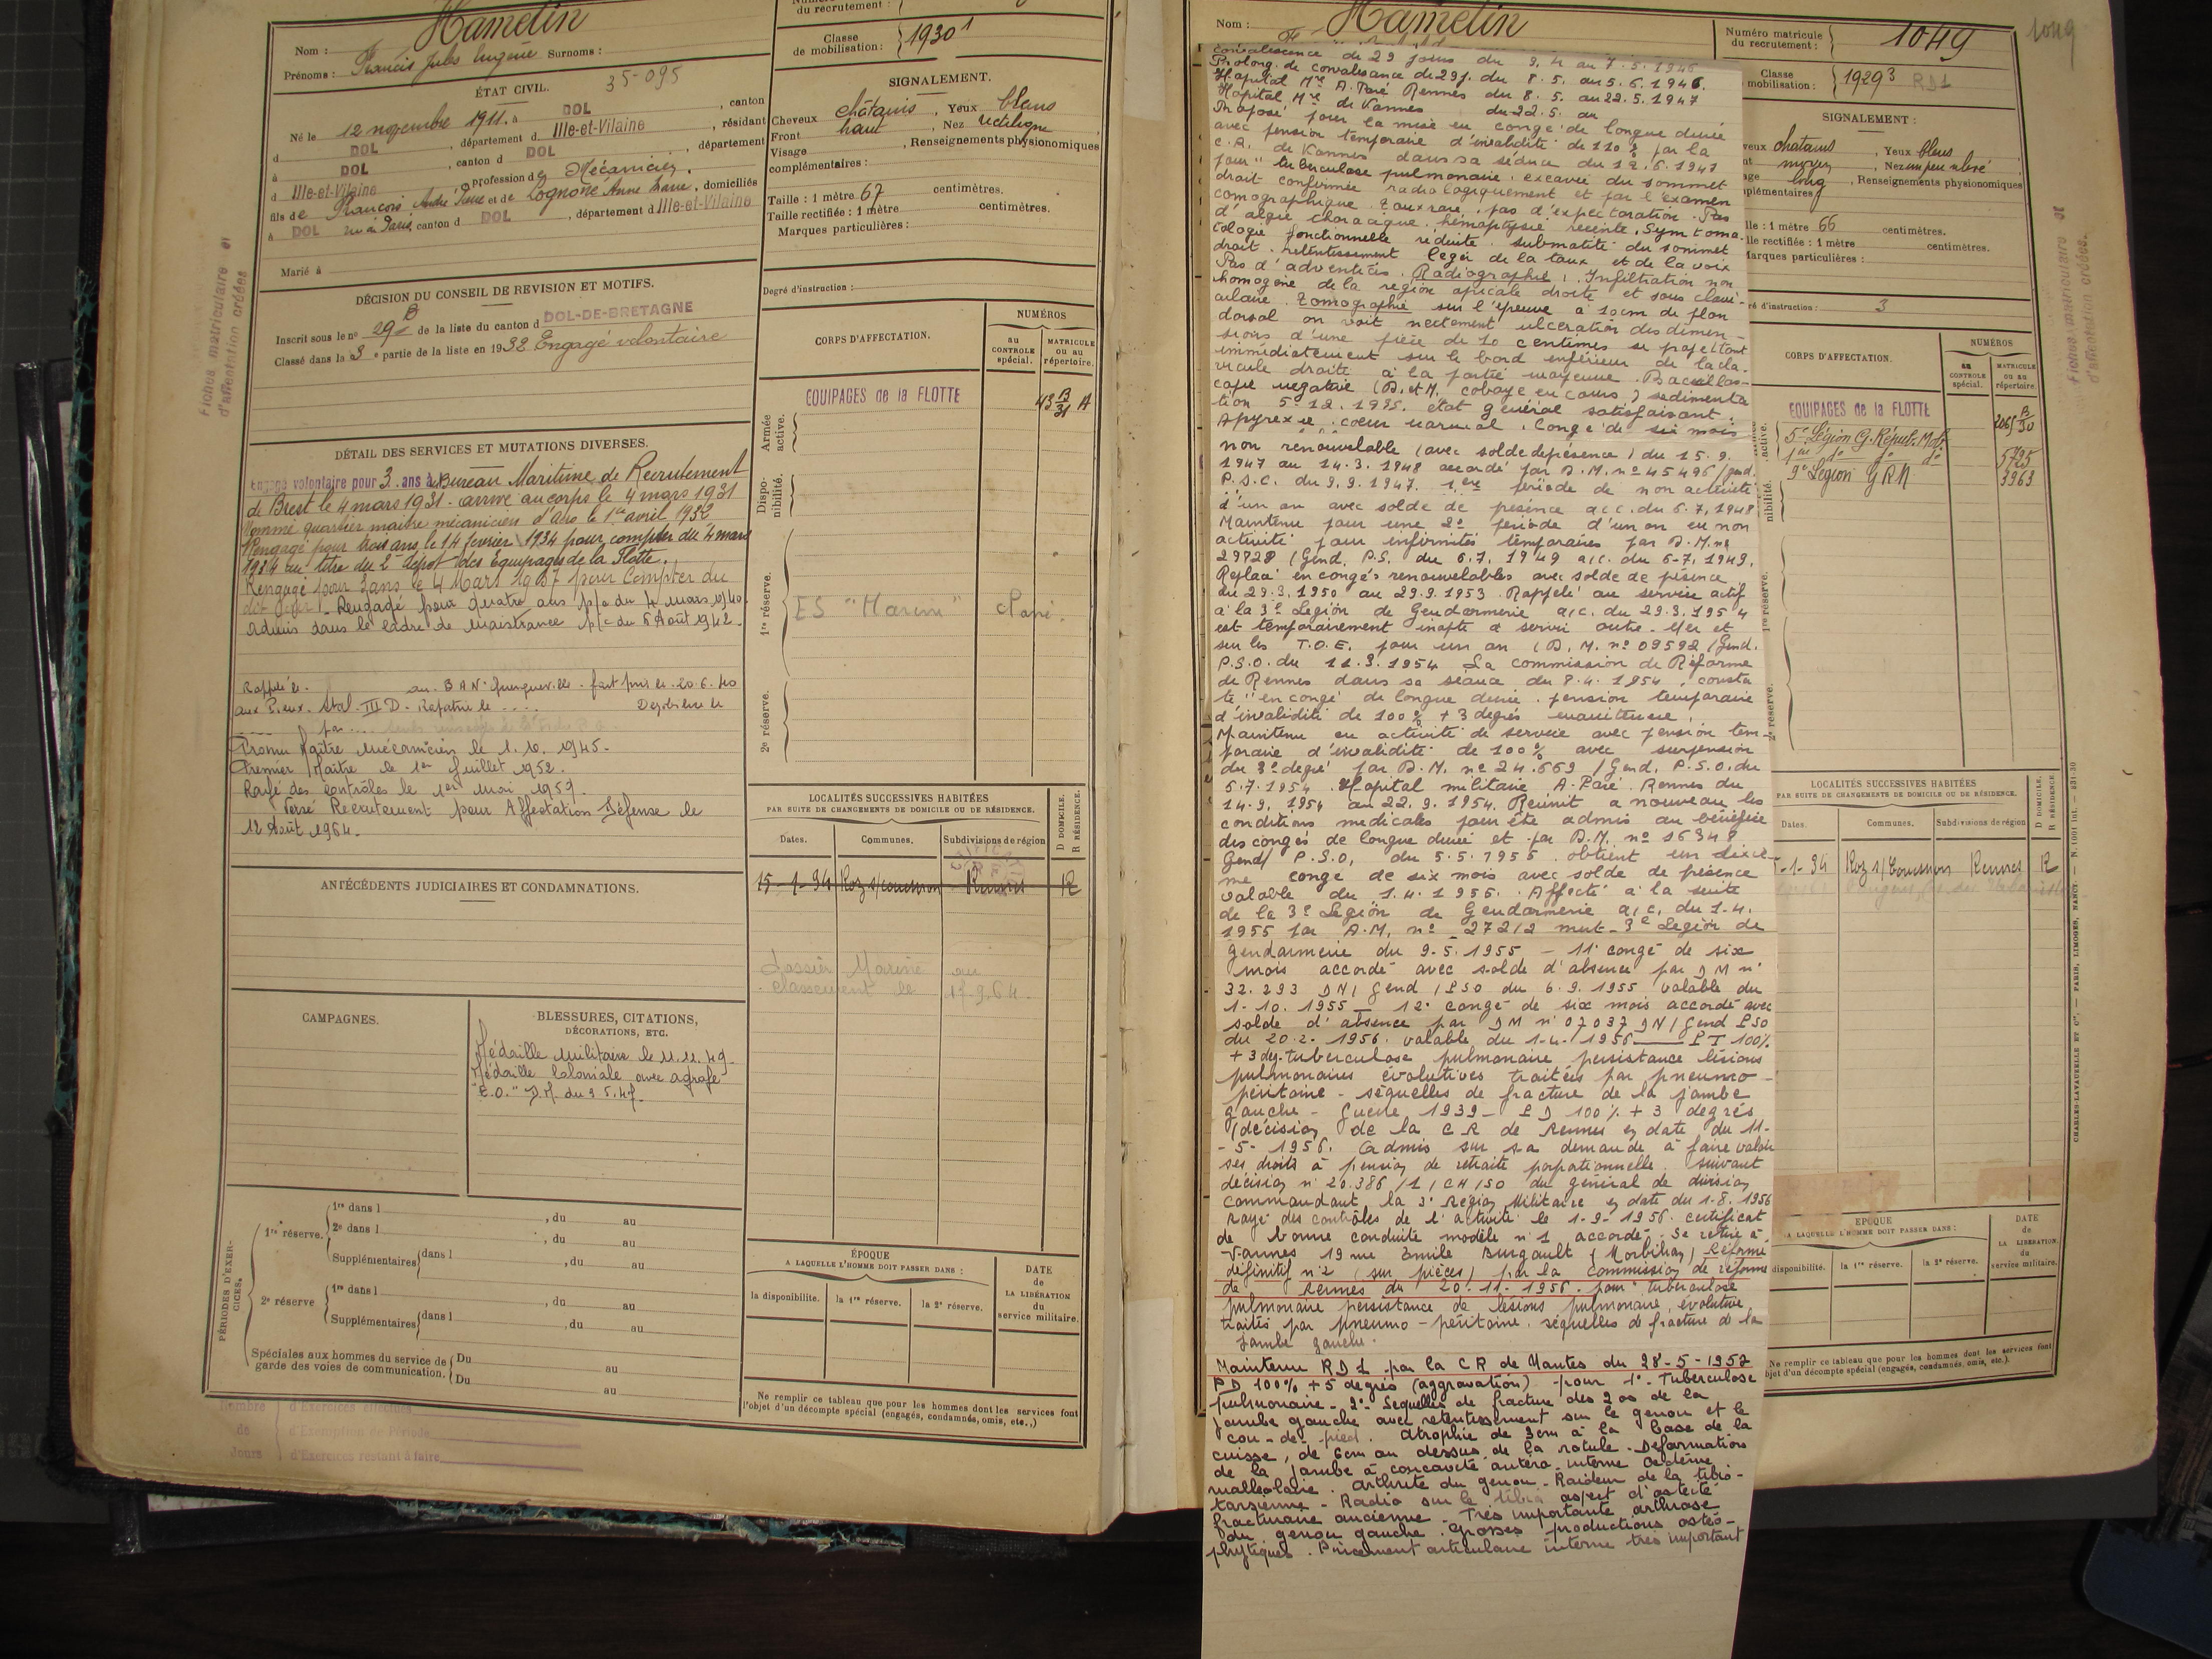 Hamelin
Nom :
Prénoms : Francis Jules Eugène Surnoms :
35-095
ÉTAT CIVIL.
Né le 12 novembre 1911, à DOL, canton
d DOL, département d Ille-et-Vilaine, résidant
à DOL, canton d DOL, département
d Ille-et-Vilaine, profession de Mécanicien.
fils de François André Pierre et de Lognoné Anne Marie, domiciliés
à DOL rue de Paris, canton d DOL, département d Ille-et-Vilaine
Marié à
DÉCISION DU CONSEIL DE REVISION ET MOTIFS.
Inscrit sous le n° 29 B de la liste du canton d DOL-DE-BRETAGNE
Classé dans la 3e partie de la liste en 1932 Engagé volontaire
DÉTAIL DES SERVICES ET MUTATIONS DIVERSES.
Engagé volontaire pour 3 ans au Bureau Maritime de Recrutement
de Brest le 4 mars 1931 - arrivé au corps le 4 mars 1931
Nommé quartier maître mécanicien d'Aro le 1er avril 1932
Rengagé pour trois ans le 14 février 1934 pour compter du 4 mars
1934 au titre du 2e dépôt des Equipages de la Flotte.
Rengagé pour 3 ans le 4 Mars 1937 pour compter du
dit jour. Rengagé pour quatre ans p/c du 4 mars 1940
Admis dans le cadre de Maistrance p/c du 6 Août 1942.
Rappelé le au BAN Querqueville - fait pris. le 20.6.40
aux Pieux. Stal. III D - Rapatrié le .... Démobilisé le
par ....
Promu Maître mécanicien le 1.10.1945.
Premier Maître le 1er Juillet 1952.
Rayé des contrôles le 1er Mai 1959.
Versé Recrutement pour Affectation Défense le
12 Août 1964.
ANTÉCÉDENTS JUDICIAIRES ET CONDAMNATIONS.
CAMPAGNES.
BLESSURES, CITATIONS,
DÉCORATIONS, ETC.
Médaille militaire le 11.11.49
Médaille Coloniale avec agrafe
"E.O." D.M. du 9.5.47.
PÉRIODES D'EXERCICES.
1re réserve.
1re dans l , du au
2e dans l , du au
Supplémentaires dans l , du au
2e réserve
1re dans l , du au
Supplémentaires dans l , du au
Spéciales aux hommes du service de garde des voies de communication.
Du au
Du au
Nombre de Jours
d'Exercices effectués
d'Exemption de Période
d'Exercices restant à faire
Fiches matriculaire et
d'affectation créées
du recrutement :
Classe
de mobilisation : 1930 1
SIGNALEMENT.
Cheveux châtains, Yeux bleus
Front haut, Nez rectiligne
Visage , Renseignements physionomiques
complémentaires :
Taille : 1 mètre 67 centimètres.
Taille rectifiée : 1 mètre centimètres.
Marques particulières :
Degré d'instruction :
CORPS D'AFFECTATION.
NUMÉROS
au CONTROLE spécial.
MATRICULE ou au répertoire.
Armée active.
EQUIPAGES de la FLOTTE
43 B/31 A
Disponibilité.
1re réserve.
ES "Marine"
2e réserve.
LOCALITÉS SUCCESSIVES HABITÉES
PAR SUITE DE CHANGEMENTS DE DOMICILE OU DE RÉSIDENCE.
D DOMICILE.
R RÉSIDENCE.
Dates. Communes. Subdivisions de région
15-1-34 Roz s/Couesnon Rennes R
Dossier Marine au
classement le 17.9.64.
ÉPOQUE
A LAQUELLE L'HOMME DOIT PASSER DANS :
la disponibilité. la 1re réserve. la 2e réserve.
DATE de LA LIBÉRATION du service militaire.
Ne remplir ce tableau que pour les hommes dont les services font
l'objet d'un décompte spécial (engagés, condamnés, omis, etc.,)
Nom : Hamelin
Numéro matricule
du recrutement : 1049
1049
convalescence de 29 jours du 9.4 au 7.5.1946
Prolong. de convalescence de 29j. du 8.5. au 5.6.1946.
Hopital Mre A. Paré Rennes du 8.5. au 22.5.1947
Hopital Mre de Vannes du 22.5. au
Proposé pour la mise en congé de longue durée
avec pension temporaire d'invalidité de 110% par la
C.R. de Vannes dans sa séance du 12.6.1947
pour "tuberculose pulmonaire excavée du sommet
droit confirmée radiologiquement et par l'examen
tomographique. Toux rare, pas d'expectoration. Pas
d'algie thoracique, hémoptysie récente. Symptoma-
tologie fonctionnelle réduite. submatité du sommet
droit. retentissement léger de la toux et de la voix
Pas d'adventices. Radiographie : Infiltration non
homogène de la région apicale droite et sous clavi-
culaire. Tomographie sur l'épreuve à 10cm de plan
dorsal on voit nettement ulcération des dimen-
sions d'une pièce de 10 centimes se projettant
immédiatement sur le bord inférieur de la cla-
vicule droite à la partie moyenne. Bacillos-
copie negative (D. et H. cobaye en cours) sedimenta
tion 5.12.1935. état général satisfaisant.
Apyrexie. coeur normal. Congé de six mois
non renouvelable (avec solde de présence) du 15.9.
1947 au 14.3.1948 accordé par D.M. n° 45496/gend.
P.S.C. du 9.9.1947. 1ère période de non activité
d'un an avec solde de présence a.c. du 6.7.1948
Maintenu pour une 2e période d'un an en non
activité pour infirmités temporaires par D.M. n°
29728 /Gend. P.S. du 6.7.1949 a/c. du 6-7.1949.
Replacé en congés renouvelables avec solde de présence
du 29.3.1950 au 29.9.1953. Rappelé au service actif
à la 3e Legion de Gendarmerie a/c. du 29.3.1954
est temporairement inapte à servir outre-Mer et
sur les T.O.E. pour un an (D.M. n° 09592/Gend.
P.S.O. du 11.3.1954 La commission de Réforme
de Rennes dans sa séance du 8.4.1954, consta
te "en congé de longue durée. pension temporaire
d'invalidité de 100% + 3 degrés
Maintenu en activité de service avec pension tem-
poraire d'invalidité de 100% avec suspension
du 3e degré par D.M. n° 24.669/Gend. P.S.O. du
5.7.1954. Hopital militaire A. Paré. Rennes du
14.9.1954 au 22.9.1954. Réunit a nouveau les
conditions medicales pour être admis au bénéfice
des congés de longue durée et par D.M. n° 16348
Gend/ P.S.O. du 5.5.1955. obtient un dixiè-
me congé de six mois avec solde de présence
valable du 1.4.1955. Affecté à la suite
de la 3e Legion de Gendarmerie a/c. du 1-4.
1955 par D.M. n° 27212 mut. 3e Legion de
gendarmerie du 9-5-1955 - 11e congé de six
mois accordé avec solde d'absence par DM n°
32.293 DN/Gend/PSO du 6.9.1955 valable du
1-10.1955 _ 12e congé de six mois accordé avec
solde d'absence par DM n° 07037 DN/Gend PSO
du 20-2-1956. valable du 1-4-1956 ___ PT 100%
+ 3 deg. tuberculose pulmonaire persistance lésions
pulmonaires évolutives traitées par pneumo-
péritoine - séquelles de fracture de la jambe
gauche - Guerre 1939 - PD 100% + 3 degrés
(décision de la CR de Rennes en date du 11-
-5-1956. Admis sur sa demande à faire valoir
ses droits à pension de retraite proportionnelle. suivant
décision n° 20.386/1/CH/SO du général de division
commandant la 3e Région Militaire en date du 1-8.1956
Rayé des contrôles de l'activité le 1-9-1956. certificat
de bonne conduite modèle n°1 accordé. Se retire à
Vannes 19 rue Emile Burgault (Morbihan) Réforme
définitif n°2 (sur pièces) par la commission de réforme
de Rennes du 20-11-1956. pour tuberculose
pulmonaire persistance de lésions pulmonaire, évolutive
traités par pneumo-péritoine. séquelles de fracture de la
Jambe gauche.
Maintenu RD 1 par la CR de Nantes du 28-5-1957
PD 100% + 5 degrés (aggravation) - pour 1°- Tuberculose
pulmonaire - 2°- Sequelles de fracture des 2 os de la
jambe gauche avec retentissement sur le genou et le
cou-de-pied. Atrophie de 3cm à la base de la
cuisse, de 6cm au dessus de la rotule - Déformation
de la jambe à concavité antéro-interne Oedème
malléolaire. Arthrite du genou - Raideur de la tibio-
tarsienne - Radio sur le tibia aspect d'ostéite
fracturaire ancienne - Très importante arthrose
du genou gauche. Grosses productions ostéo-
phytiques. Pincement articulaire interne très important
Classe
mobilisation : 1929 3 RD1
SIGNALEMENT :
veux chatains, Yeux bleus
nt moyen, Nez un peu abné
age long, Renseignements physionomiques
plémentaires
lle : 1 mètre 66 centimètres.
lle rectifiée : 1 mètre centimètres.
Marques particulières :
ré d'instruction : 3
CORPS D'AFFECTATION.
NUMÉROS
au CONTROLE spécial.
MATRICULE ou au répertoire.
EQUIPAGES de la FLOTTE 2065 B/30
5e Légion G. Répub. Mob
1ère do do do 5725
3e Légion GRM 3963
active.
nibilité.
1re réserve.
réserve.
LOCALITÉS SUCCESSIVES HABITÉES
PAR SUITE DE CHANGEMENTS DE DOMICILE OU DE RÉSIDENCE.
D DOMICILE.
R RÉSIDENCE.
Dates. Communes. Subdivisions de région
-1-34 Roz s/Couesnon Rennes R
ÉPOQUE
A LAQUELLE L'HOMME DOIT PASSER DANS :
disponibilité. la 1re réserve. la 2e réserve.
DATE de LA LIBÉRATION du service militaire.
Ne remplir ce tableau que pour les hommes dont les services font
objet d'un décompte spécial (engagés, condamnés, omis, etc.).
Fiches matriculaire et
d'affectation créées.
CHARLES-LAVAUZELLE ET Cie. — PARIS, LIMOGES, NANCY.